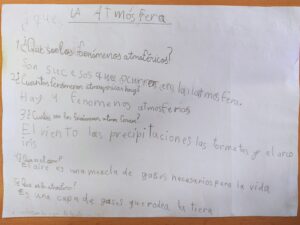 LA Atmósfera
1¿Qué son los fenómenos atmosféricos?
Son sucesos que ocurren en la atmosfera.
2¿Cuantos fenomenos atmosfericos hay?
Hay 4 fenomenos atmosferios
3¿Cuales son los fenomenos
El viento las precipitaciones las tormetas y el arco
iris
4¿Que es el aire?
El aire es una mezcla de gases necesarios para la vida
5¿Que es la atmosfera?
Es una capa de gases que rodea la tierra